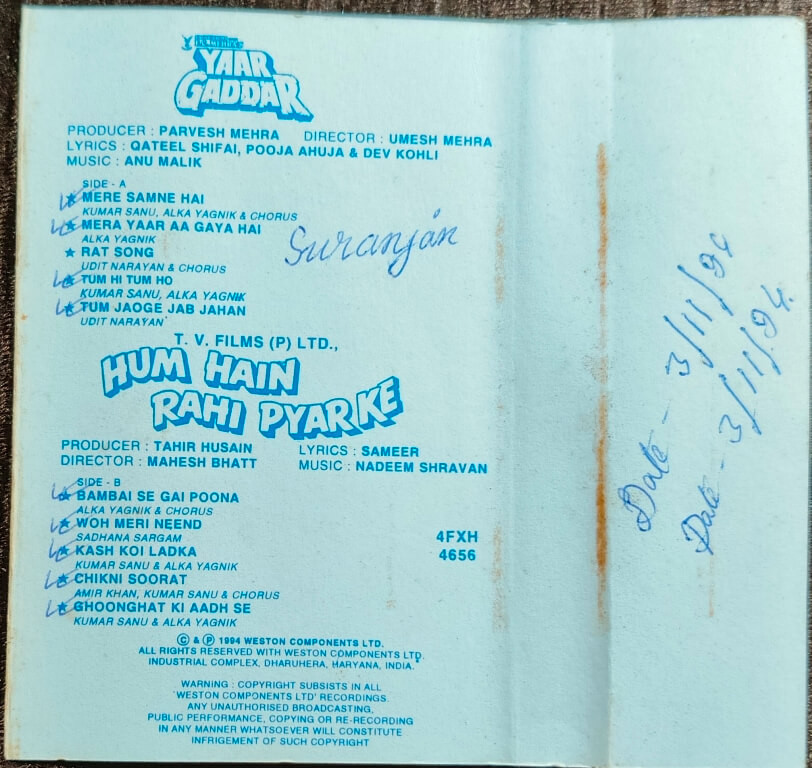 YAAR
GADDAR
PRODUCER : PARVESH MEHRA DIRECTOR : UMESH MEHRA
LYRICS : QATEEL SHIFAI, POOJA AHUJA & DEV KOHLI
MUSIC : ANU MALIK
SIDE - A
★ MERE SAMNE HAI
KUMAR SANU, ALKA YAGNIK & CHORUS
★ MERA YAAR AA GAYA HAI
ALKA YAGNIK
★ RAT SONG
UDIT NARAYAN & CHORUS
★ TUM HI TUM HO
KUMAR SANU, ALKA YAGNIK
★ TUM JAOGE JAB JAHAN
UDIT NARAYAN
Suranjan
T. V. FILMS (P) LTD.,
HUM HAIN
RAHI PYAR KE
PRODUCER : TAHIR HUSAIN LYRICS : SAMEER
DIRECTOR : MAHESH BHATT MUSIC : NADEEM SHRAVAN
SIDE - B
★ BAMBAI SE GAI POONA
ALKA YAGNIK & CHORUS
★ WOH MERI NEEND
SADHANA SARGAM
★ KASH KOI LADKA
KUMAR SANU & ALKA YAGNIK
★ CHIKNI SOORAT
AMIR KHAN, KUMAR SANU & CHORUS
★ GHOONGHAT KI AADH SE
KUMAR SANU & ALKA YAGNIK
4FXH
4656
© & ℗ 1994 WESTON COMPONENTS LTD.
ALL RIGHTS RESERVED WITH WESTON COMPONENTS LTD.
INDUSTRIAL COMPLEX, DHARUHERA, HARYANA, INDIA.
WARNING : COPYRIGHT SUBSISTS IN ALL
'WESTON COMPONENTS LTD' RECORDINGS.
ANY UNAUTHORISED BROADCASTING,
PUBLIC PERFORMANCE, COPYING OR RE-RECORDING
IN ANY MANNER WHATSOEVER WILL CONSTITUTE
INFRIGEMENT OF SUCH COPYRIGHT
Date - 3/11/94
Date - 3/11/94.